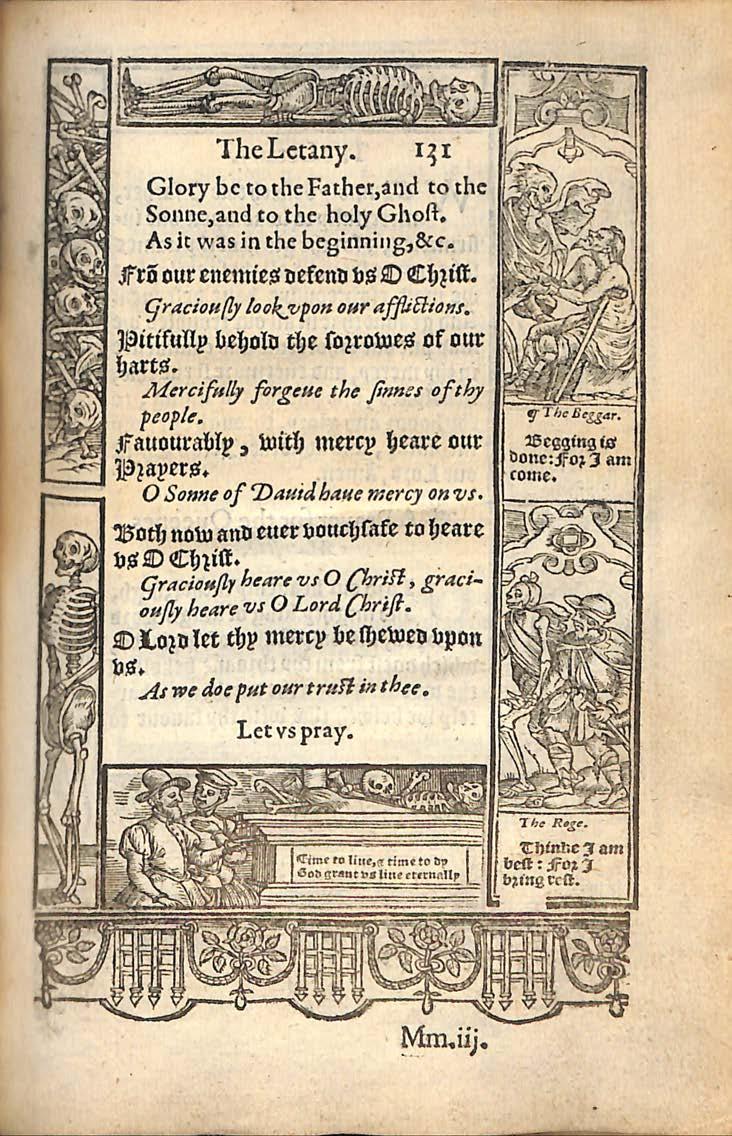 The Letany. 131
Glory be to the Father,and to the
Sonne,and to the holy Ghoſt.
As it was in the beginning,&c.
Frõ our enemies defend vs O Chꝛiſt.
Graciouſly look vpon our afflictions.
Pitifully behold the ſoꝛrowes of our
harts.
Mercifully forgeue the ſinnes of thy
people.
Fauourably, with mercy heare our
Pꝛayers.
O Sonne of Dauid haue mercy on vs.
Both now and euer vouchſafe to heare
vs O Chꝛiſt.
Graciouſly heare vs O Chriſt, graci-
ouſly heare vs O Lord Chriſt.
O Loꝛd let thy mercy be ſhewed vpon
vs.
As we doe put our truſt in thee.
Let vs pray.
Time to liue, & time to dy
God grant vs liue eternally
¶ The Beggar.
Begging is
done: Foꝛ I am
come.
The Roge.
Thinke I am
beſt: Foꝛ I
bꝛing reſt.
Mm.iij.